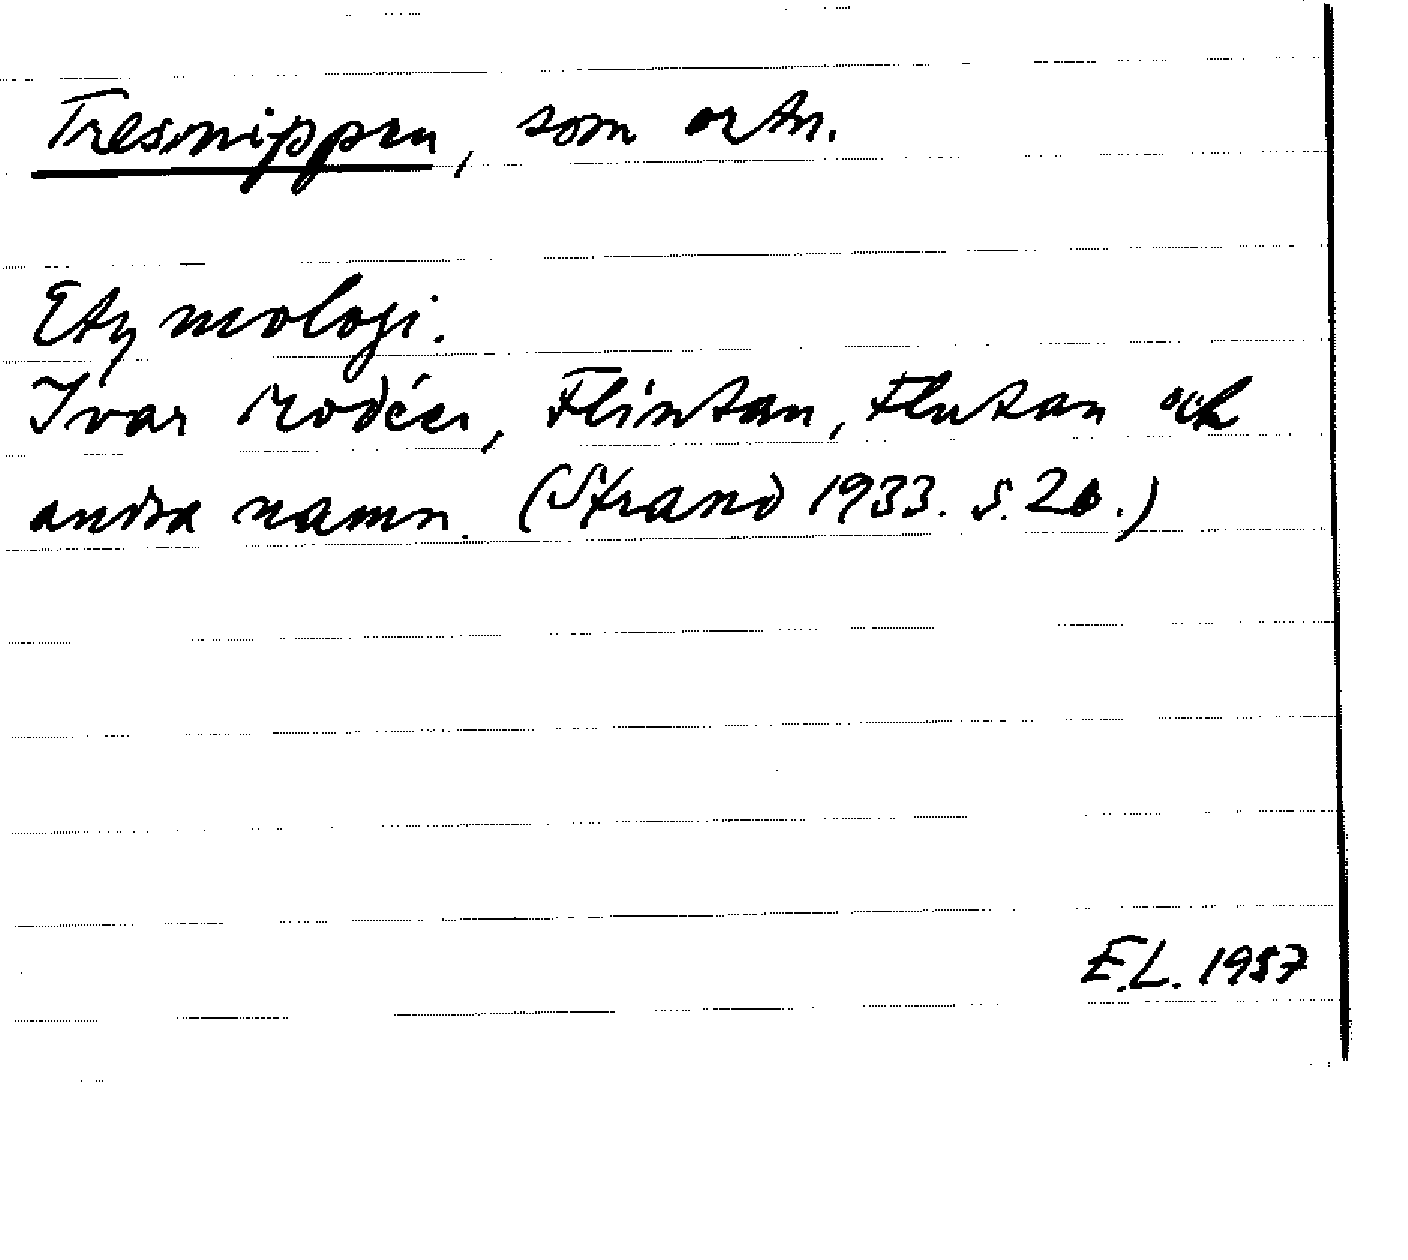 Tresnippen, som ortn.
Etymologi.
Ivar Modéer, Flintan, Flutan och
andra namn. (Strand 1933. s. 26.)
E.L. 1957